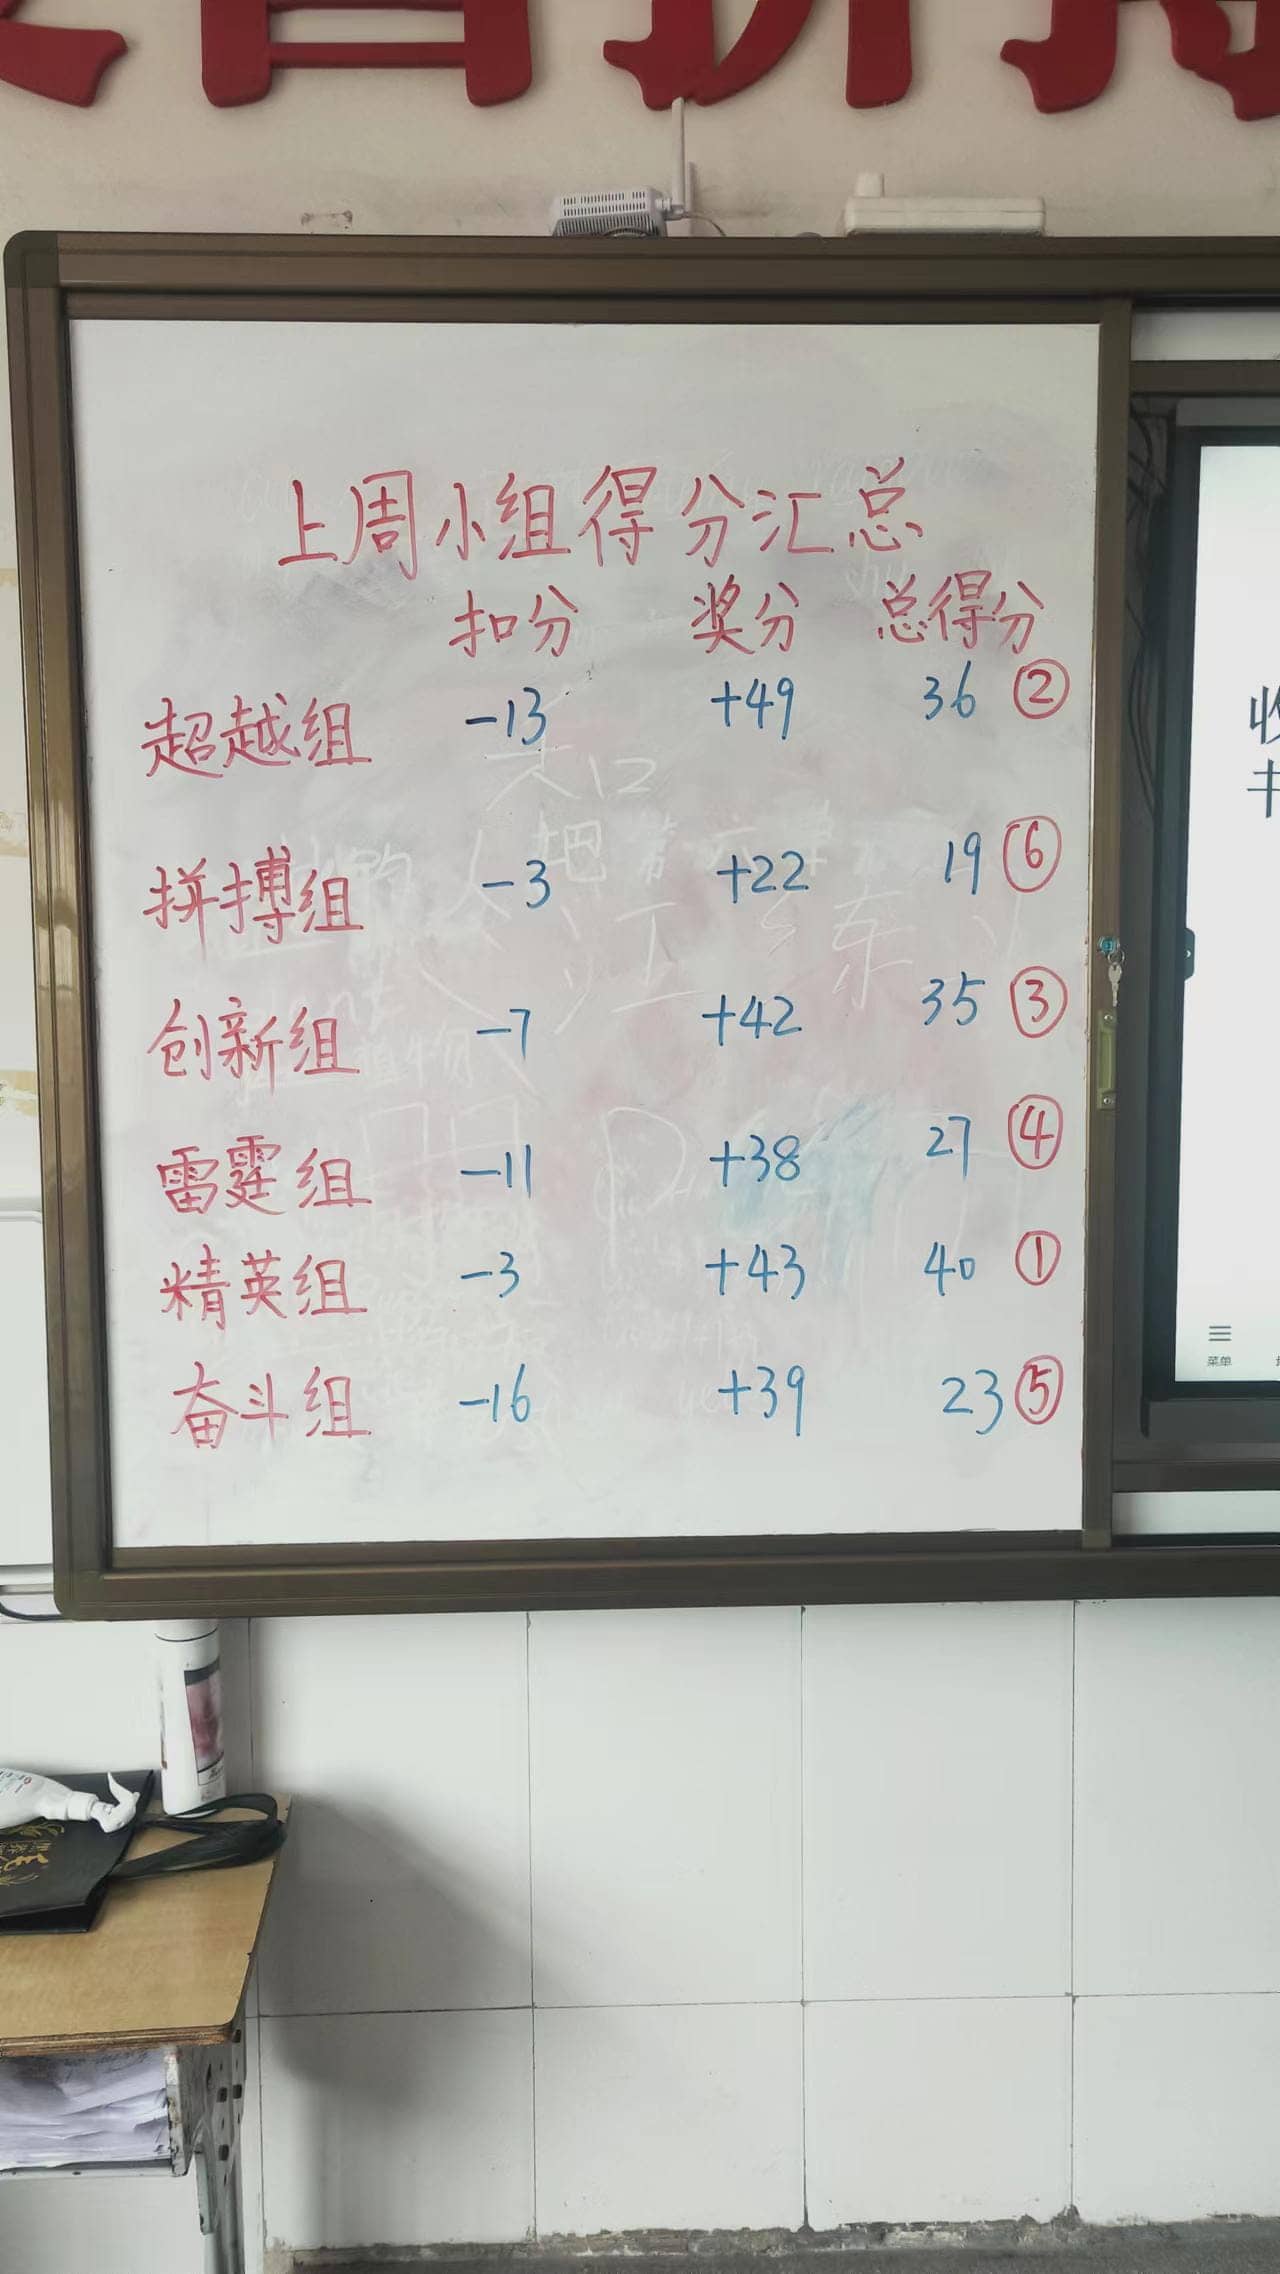 上周小组得分汇总
扣分 奖分 总得分
超越组 -13 +49 36 ②
拼搏组 -3 +22 19 ⑥
创新组 -7 +42 35 ③
雷霆组 -11 +38 27 ④
精英组 -3 +43 40 ①
奋斗组 -16 +39 23 ⑤
菜单